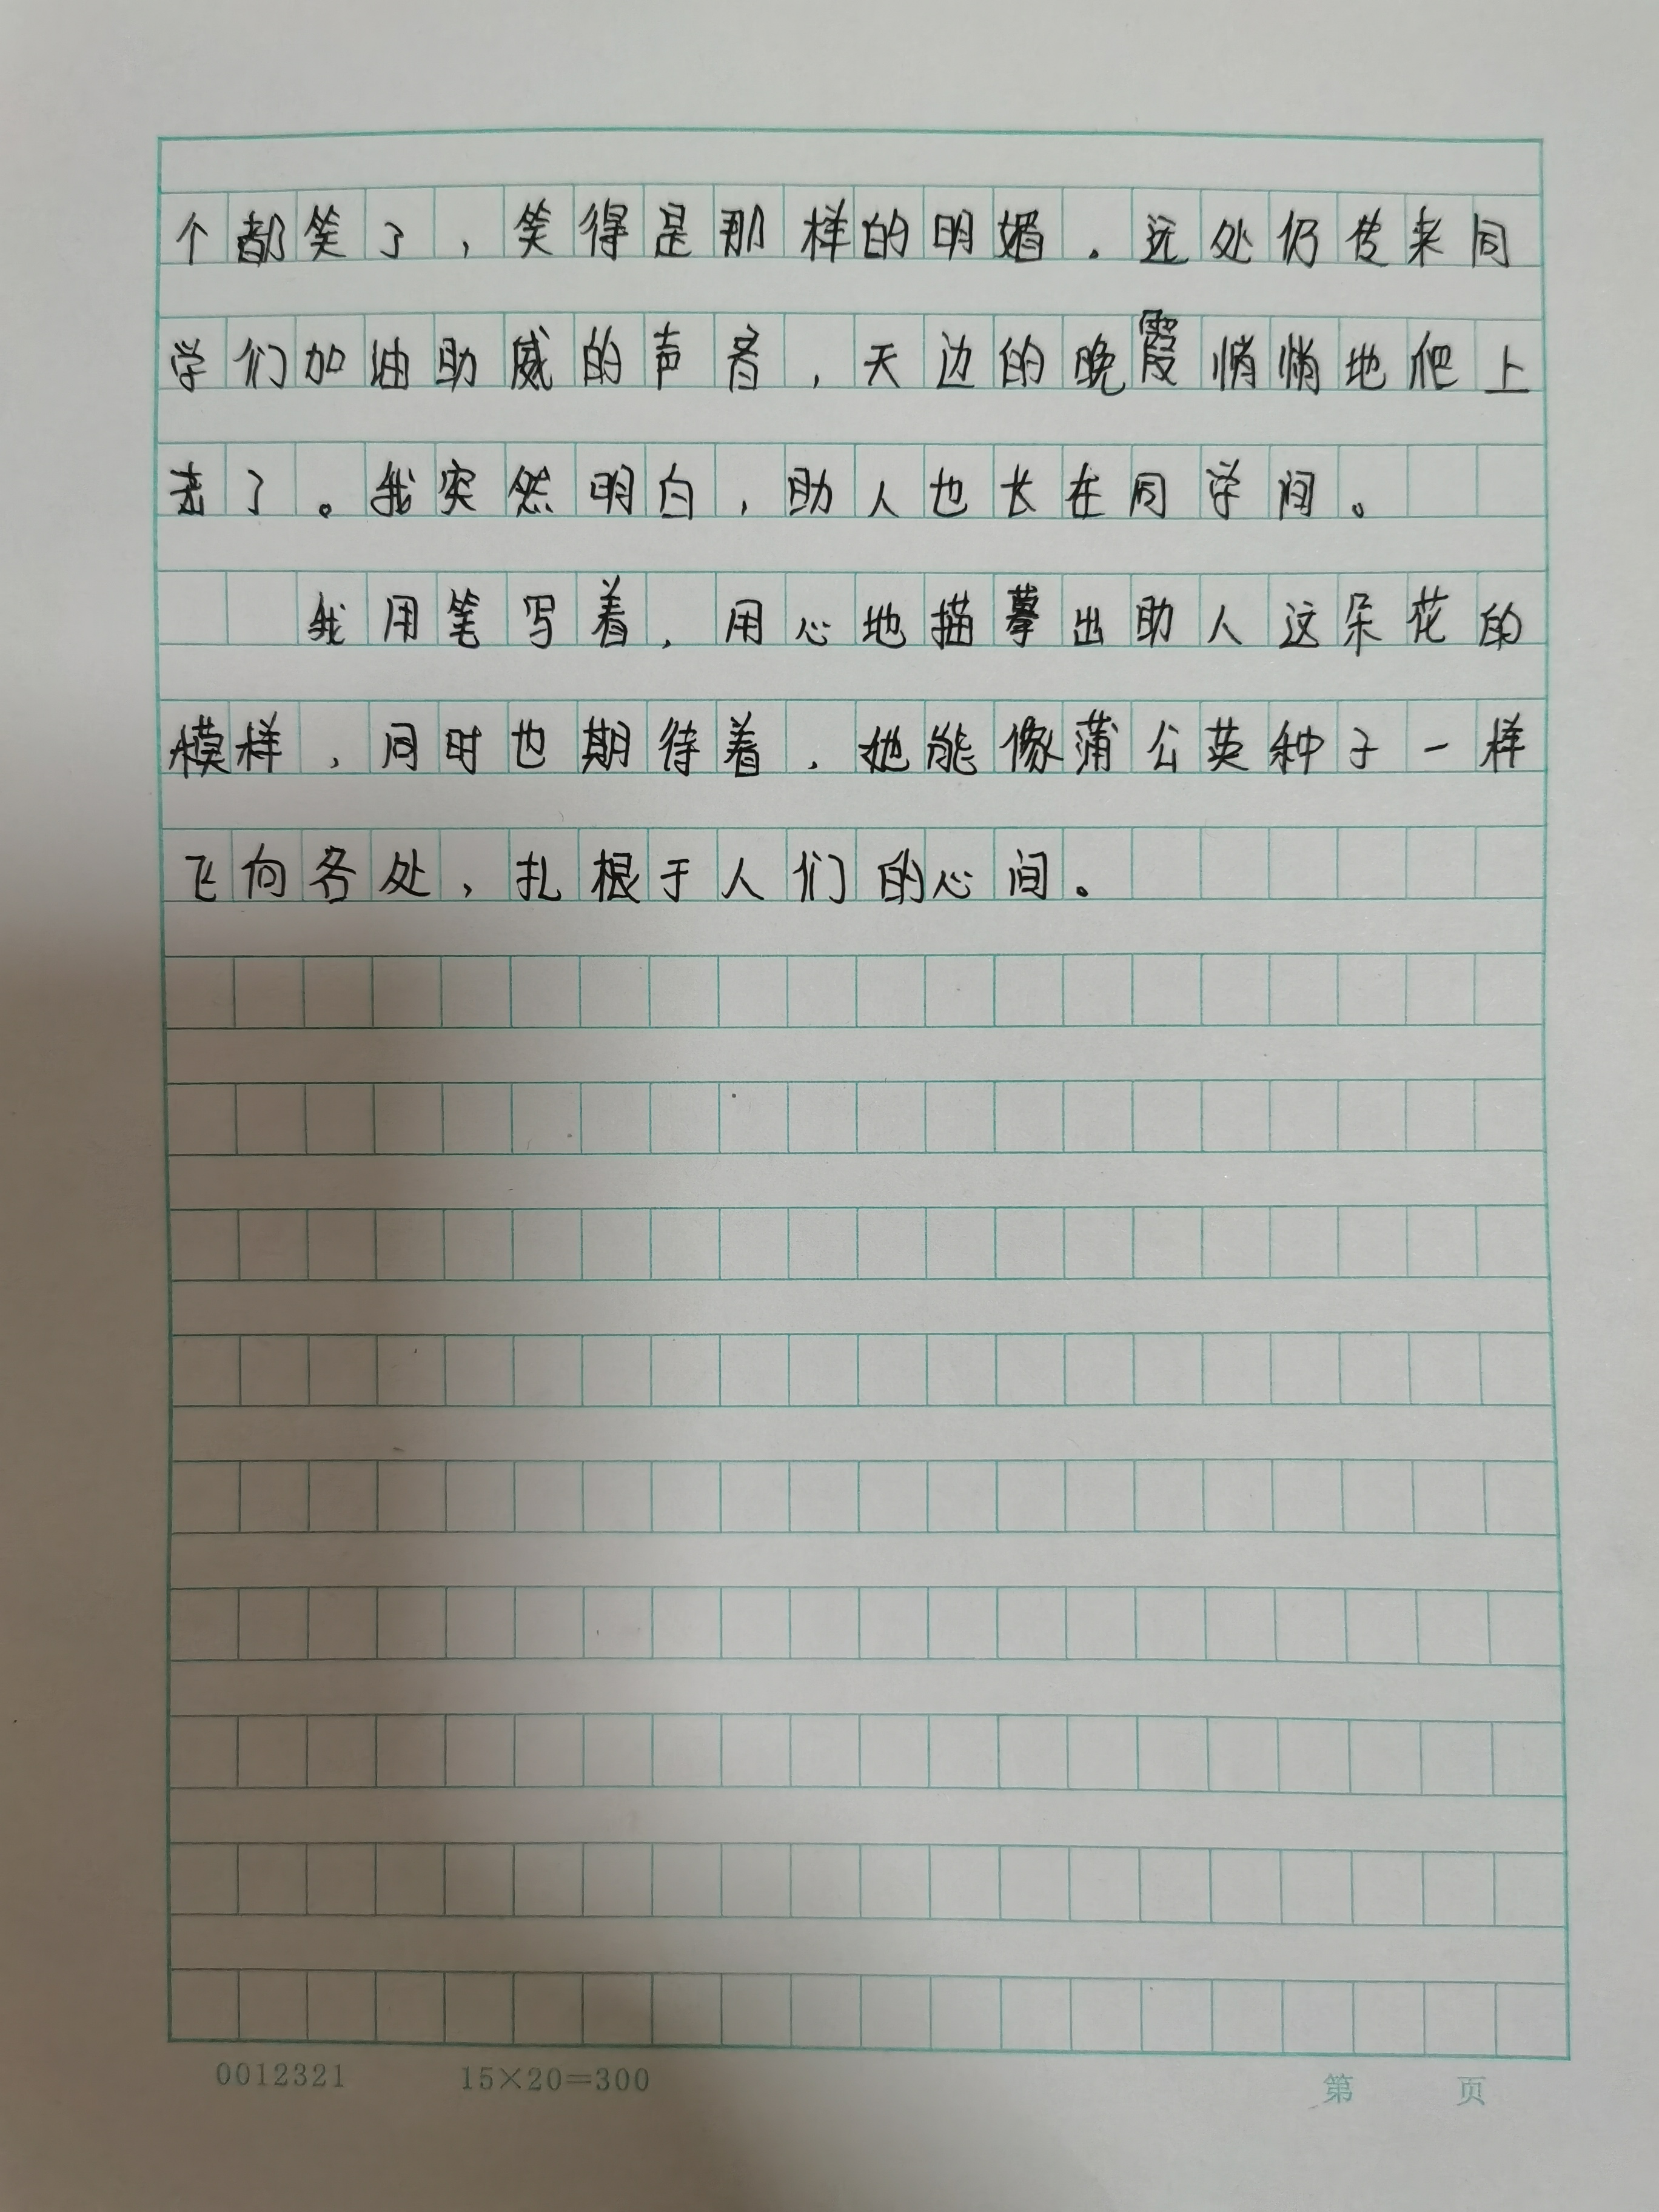 个都笑了，笑得是那样的明媚。远处仍传来同
学们加油助威的声音，天边的晚霞悄悄地爬上
去了。我突然明白，助人也长在同学间。
我用笔写着，用心地描摹出助人这朵花的
模样，同时也期待着，她能像蒲公英种子一样
飞向各处，扎根于人们的心间。
0012321 15×20=300 第 页